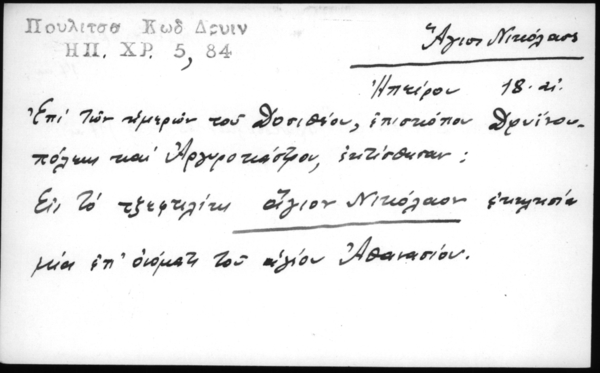 Πουλιτσα Κωδ Δρυιν
ΗΠ. ΧΡ. 5, 84
Ἅγιοι Νικόλαοι
Ἠπείρου 18. αἰ.
Ἐπί τῶν ἡμερῶν τοῦ Δοσιθέου, ἐπισκόπου Δρυϊνου-
πόλεως καί Ἀργυροκάστρου, ἐκτίσθησαν:
Εἰς τό τζεφτελίτι ἅγιον Νικόλαον ἐκκλησία
μία ἐπ' ὀνόματι τοῦ ἁγίου Ἀθανασίου.